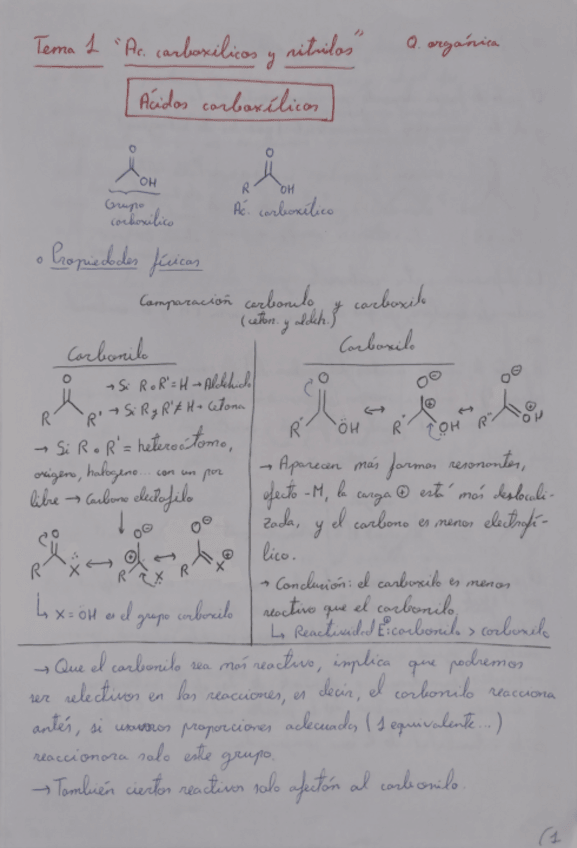 Tema 1 "Ac. carboxílicos y nitrilos" Q. orgánica
Ácidos carboxílicos
O
OH
Grupo
carboxílico
O
R OH
Ác. carboxílico
o Propiedades físicas
Comparación carbonilo y carboxilo
(ceton. y aldeh.)
Carbonilo
O
R R'
→ Si R o R' = H → Aldehido
→ Si R y R' ≠ H → Cetona
→ Si R o R' = heteroátomo,
oxígeno, halogeno... con un par
libre → Carbono electrofilo
O
R X
O⊖
⊕
R X
O⊖
R X⊕
↳ X = OH es el grupo carboxilo
Carboxilo
O
R' ÖH
O⊖
⊕
R' ÖH
O⊖
R' ⊕OH
→ Aparecen más formas resonantes,
efecto -M, la carga ⊕ está más deslocali-
zada, y el carbono es menos electrofí-
lico.
→ Conclusión: el carboxilo es menos
reactivo que el carbonilo.
↳ Reactividad E⊕: carbonilo > carboxilo
→ Que el carbonilo sea más reactivo, implica que podremos
ser selectivos en las reacciones, es decir, el carbonilo reacciona
antés, si usamos proporciones adecuadas (1 equivalente...)
reaccionara solo este grupo.
→ También ciertos reactivos solo afectán al carbonilo.
(1